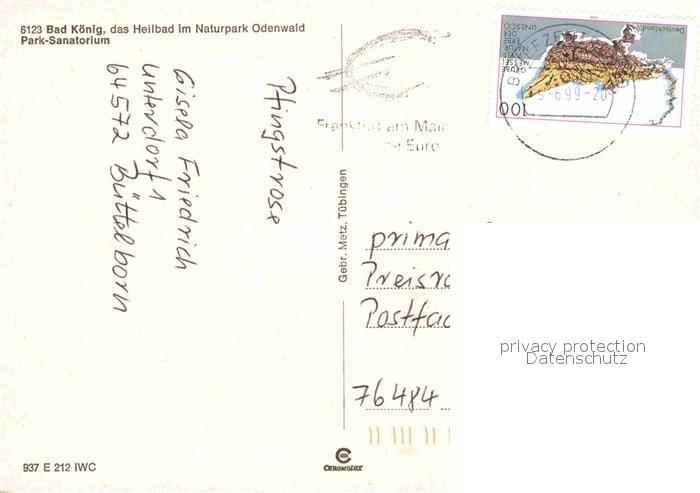 6123 Bad König, das Heilbad im Naturpark Odenwald
Park-Sanatorium
Gisela Friedrich
Unterdorf 1
64572 Büttelborn
Pfingstrose
Gebr. Metz, Tübingen
Frankfurt am Main
Euro
Deutschland
GRUBE
MESSEL
WELT-
NATUR-
ERBE
DER
UNESCO
100
6.99-20
prima
Preisr
Postfac
76484
privacy protection
Datenschutz
937 E 212 IWC
CHROMOLUX